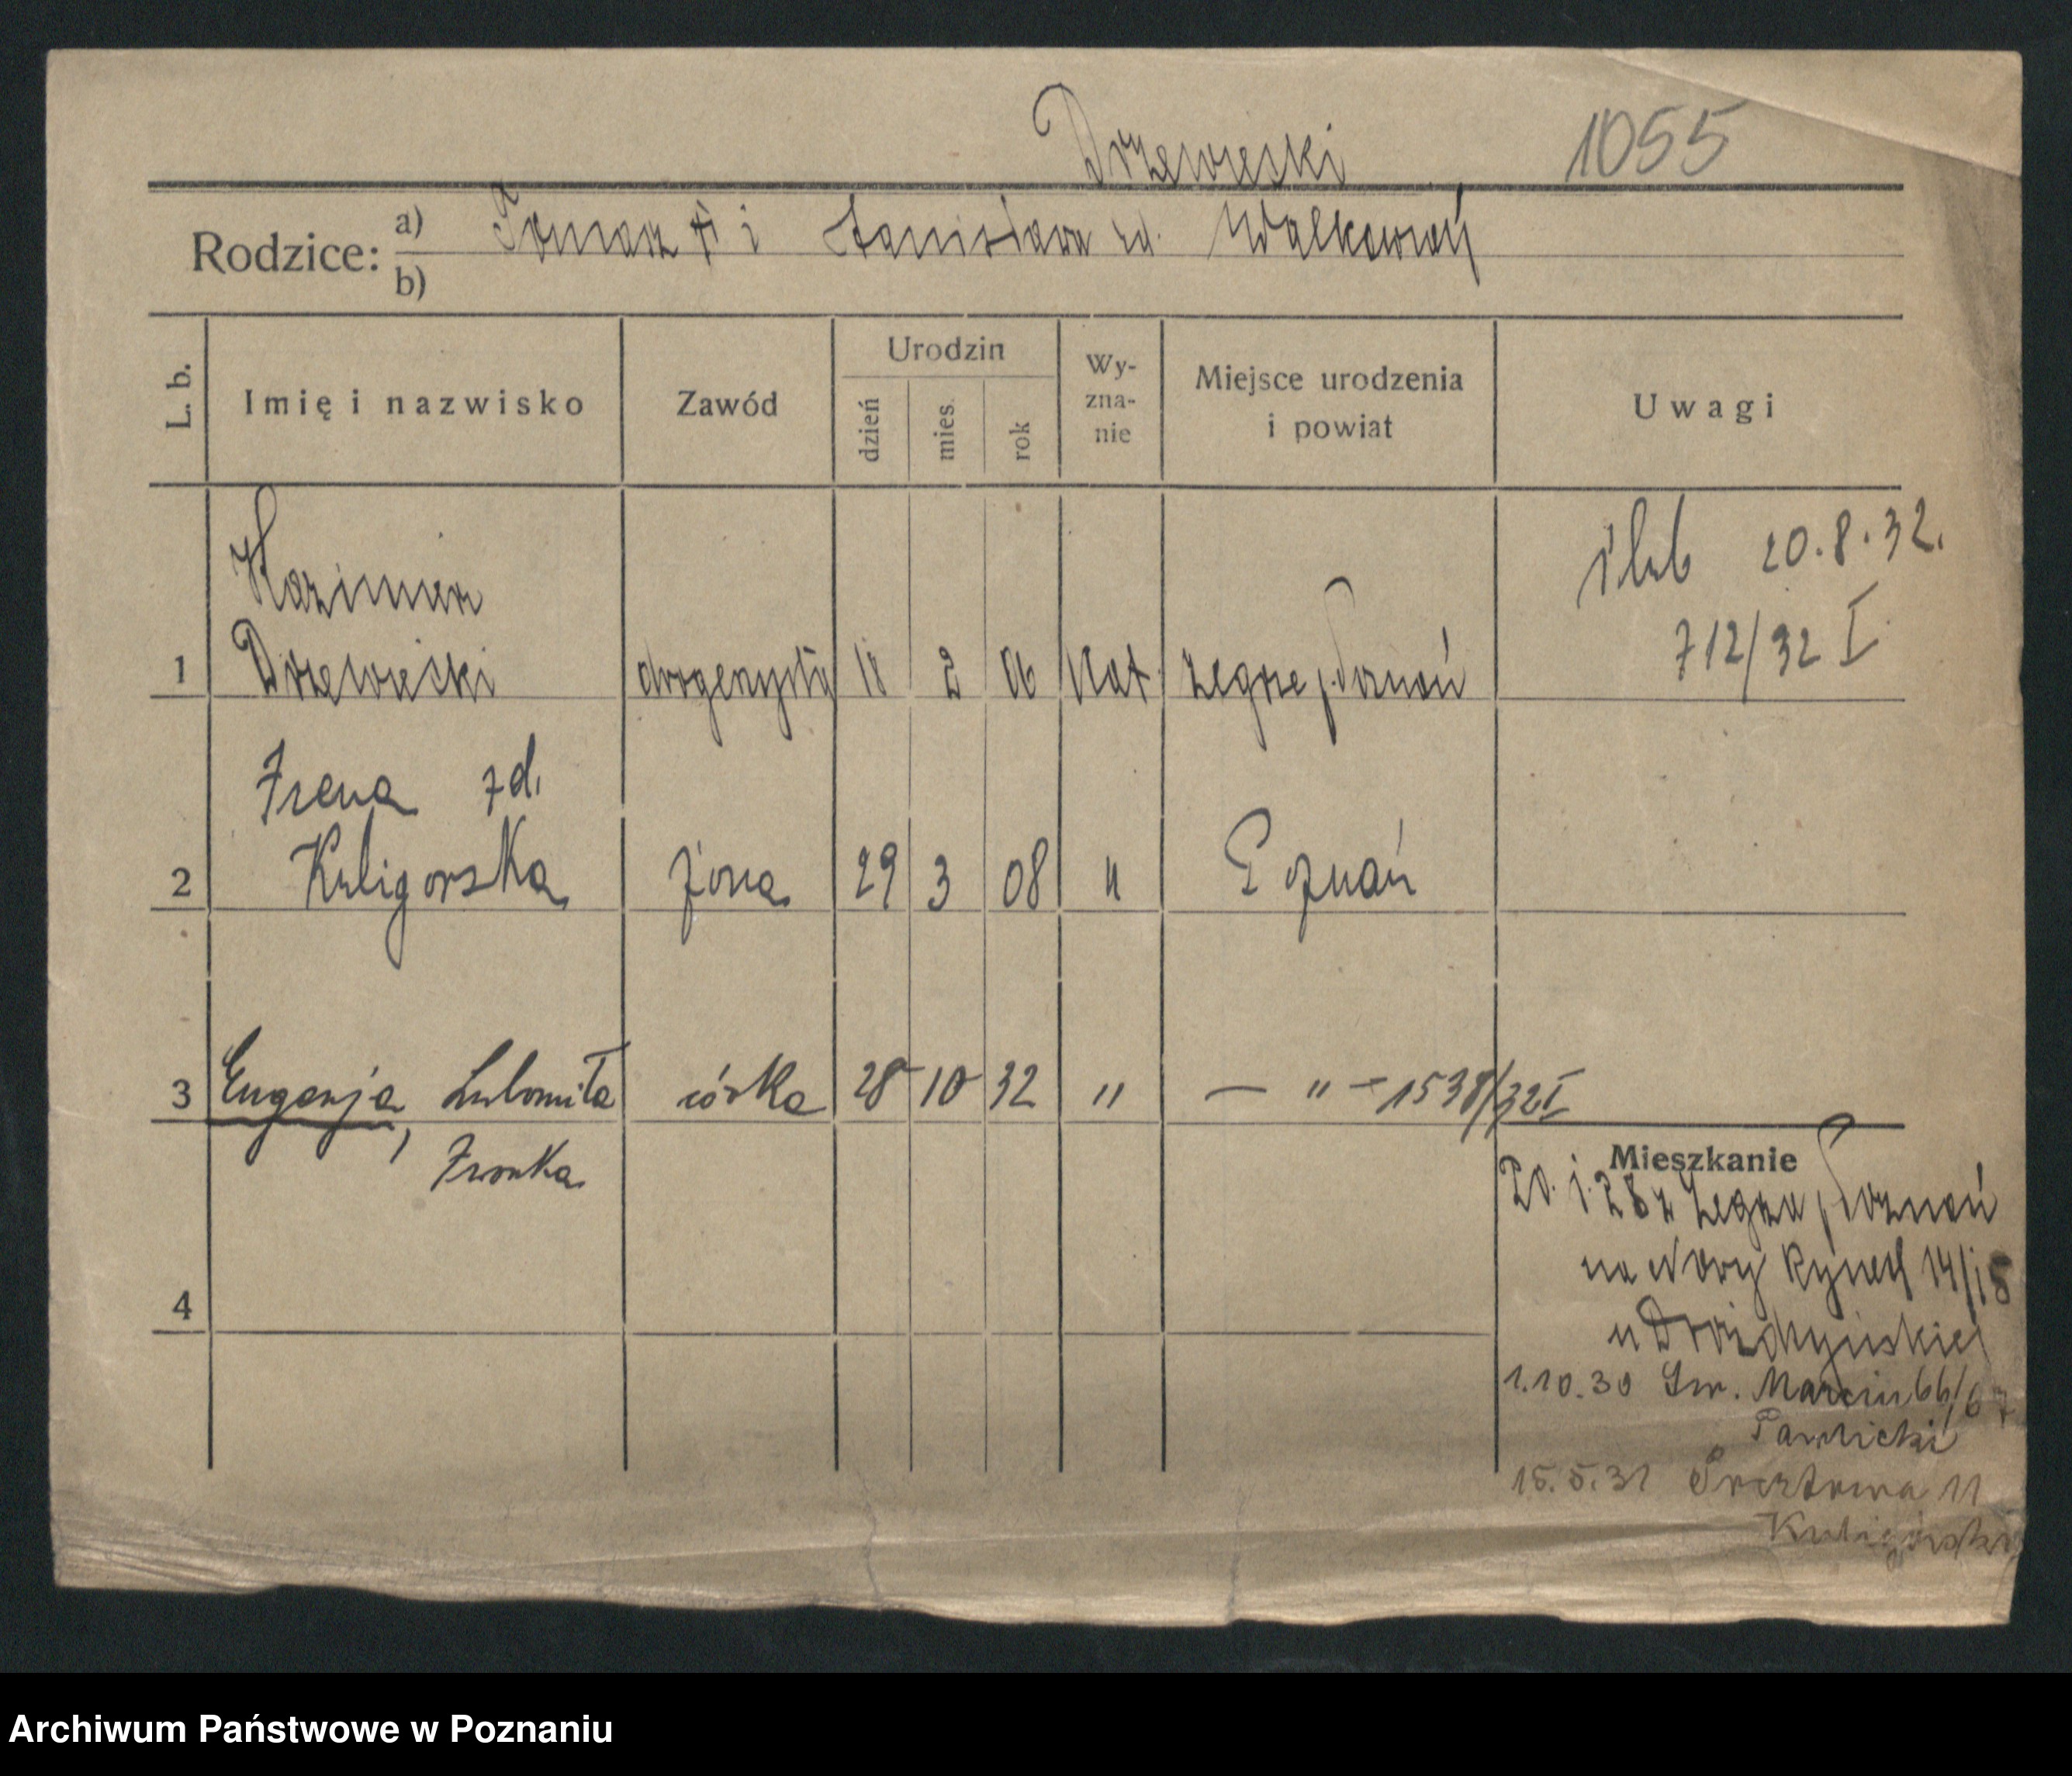 Drzewieski 1055
Rodzice: a) Tomasz i Stanisława zd. Walkowiak
b)
L. b. Imię i nazwisko Zawód Urodzin dzień mies. rok Wy-zna-nie Miejsce urodzenia i powiat Uwagi
Kazimierz ślub 20.8.32.
712/32 I
1 Drzewiecki drogerzysta 18 2 06 Kat. Żegrze p. Poznań
Irena zd.
2 Kuligorska żona 29 3 08 " Poznań
3 Eugenja, Lubomiła córka 28 10 32 " — " — 1538/32 I
Ironka
Mieszkanie
20. 1. 28 z Żegrza p. Poznań
na Nowy Rynek 14/15
4
u Drożdżyńskiej
1.10.30 Św. Marcin 66/67
Pawlicki
15.5.31 Pocztowa 11
Kuligórski
Archiwum Państwowe w Poznaniu